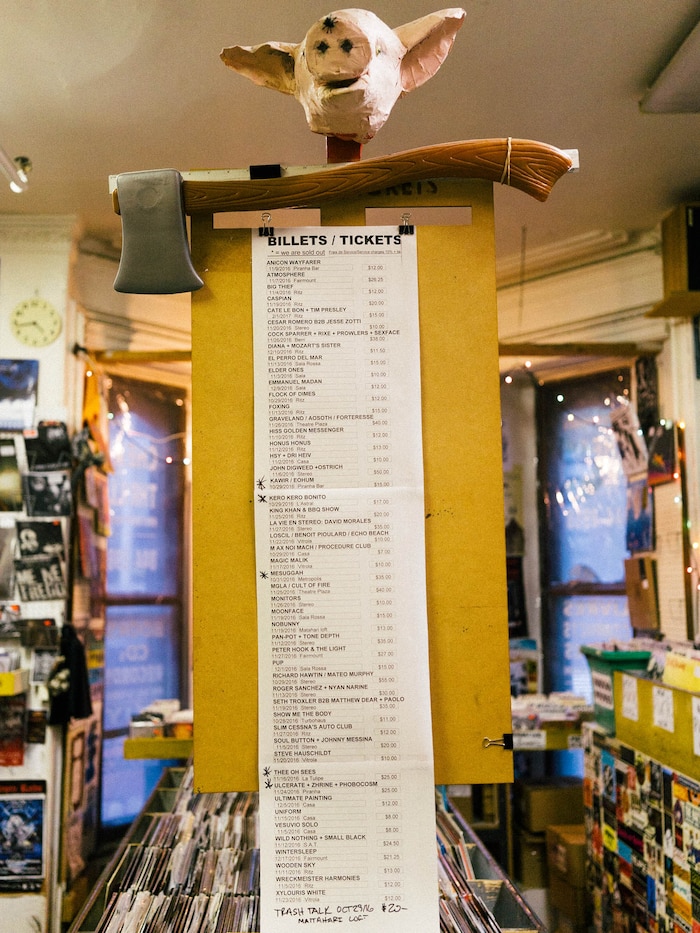 BILLETS / TICKETS
* = we are sold out
ANICON WAYFARER
11/9/2016 Piranha Bar $12.00
ATMOSPHERE
11/7/2016 Fairmount $26.25
BIG THIEF
11/4/2016 Ritz $12.00
CASPIAN
11/19/2016 Ritz $20.00
CATE LE BON + TIM PRESLEY
2/1/2017 Ritz $15.00
CESAR ROMERO B2B JESSE ZOTTI
11/20/2016 Stereo $10.00
COCK SPARRER + RIXE + PROWLERS + SEXFACE
11/26/2016 Berri $38.00
DIANA + MOZART'S SISTER
12/10/2016 Ritz $11.50
EL PERRO DEL MAR
11/13/2016 Sala Rossa $15.05
ELDER ONES
11/3/2016 Sala $10.00
EMMANUEL MADAN
12/8/2016 Sala $12.00
FLOCK OF DIMES
10/29/2016 Ritz $12.00
FOXING
11/13/2016 Ritz $15.00
GRAVELAND / AOSOTH / FORTERESSE
11/26/2016 Theatre Plaza $40.00
HISS GOLDEN MESSENGER
11/10/2016 Ritz $12.00
HONUS HONUS
11/12/2016 Ritz $13.00
HSY + DRI HEIV
11/2/2016 Casa $10.00
JOHN DIGWEED +OSTRICH
11/6/2016 Stereo $50.00
* KAWIR / EOHUM
10/29/2016 Piranha Bar $15.00
* KERO KERO BONITO
10/29/2016 L'Astral $17.00
KING KHAN & BBQ SHOW
11/25/2016 Ritz $20.00
LA VIE EN STEREO: DAVID MORALES
11/27/2016 Stereo $35.00
LOSCIL / BENOIT PIOULARD / ECHO BEACH
11/22/2016 Vitrola $15.00
M AX NOI MACH / PROCEDURE CLUB
10/29/2016 Casa $7.00
MAGIC MALIK
11/17/2016 Vitrola $10.00
* MESUGGAH
10/31/2016 Metropolis $35.00
MGLA / CULT OF FIRE
11/25/2016 Theatre Plaza $40.00
MONITORS
11/26/2016 Stereo $10.00
MOONFACE
11/19/2016 Sala Rossa $15.00
NOBUNNY
11/18/2016 Matahari loft $13.00
PAN-POT + TONE DEPTH
11/12/2016 Stereo $35.00
PETER HOOK & THE LIGHT
11/27/2016 Fairmount $27.00
PUP
12/1/2016 Sala Rossa $15.00
RICHARD HAWTIN / MATEO MURPHY
10/28/2016 Stereo $55.00
ROGER SANCHEZ + NYAN NARINE
11/13/2016 Stereo $30.00
SETH TROXLER B2B MATTHEW DEAR + PAOLO
11/19/2016 Stereo $35.00
SHOW ME THE BODY
10/28/2016 Turbohaus $11.00
SLIM CESSNA'S AUTO CLUB
11/27/2016 Ritz $12.00
SOUL BUTTON + JOHNNY MESSINA
11/5/2016 Stereo $20.00
STEVE HAUSCHILDT
11/20/2016 Vitrola $10.00
* THEE OH SEES
11/16/2016 La Tulipe $25.00
* ULCERATE + ZHRINE + PHOBOCOSM
11/24/2016 Piranha $25.00
ULTIMATE PAINTING
12/5/2016 Casa $12.00
UNIFORM
11/15/2016 Casa $8.00
VESUVIO SOLO
11/5/2016 Casa $8.00
WILD NOTHING + SMALL BLACK
11/12/2016 S.A.T $24.50
WINTERSLEEP
12/17/2016 Fairmount $21.25
WOODEN SKY
11/11/2016 Ritz $13.00
WRECKMEISTER HARMONIES
11/5/2016 Ritz $12.00
XYLOURIS WHITE
11/23/2016 Vitrola $12.00
TRASH TALK OCT 29/16 $20-
MATTAHARI LOFT